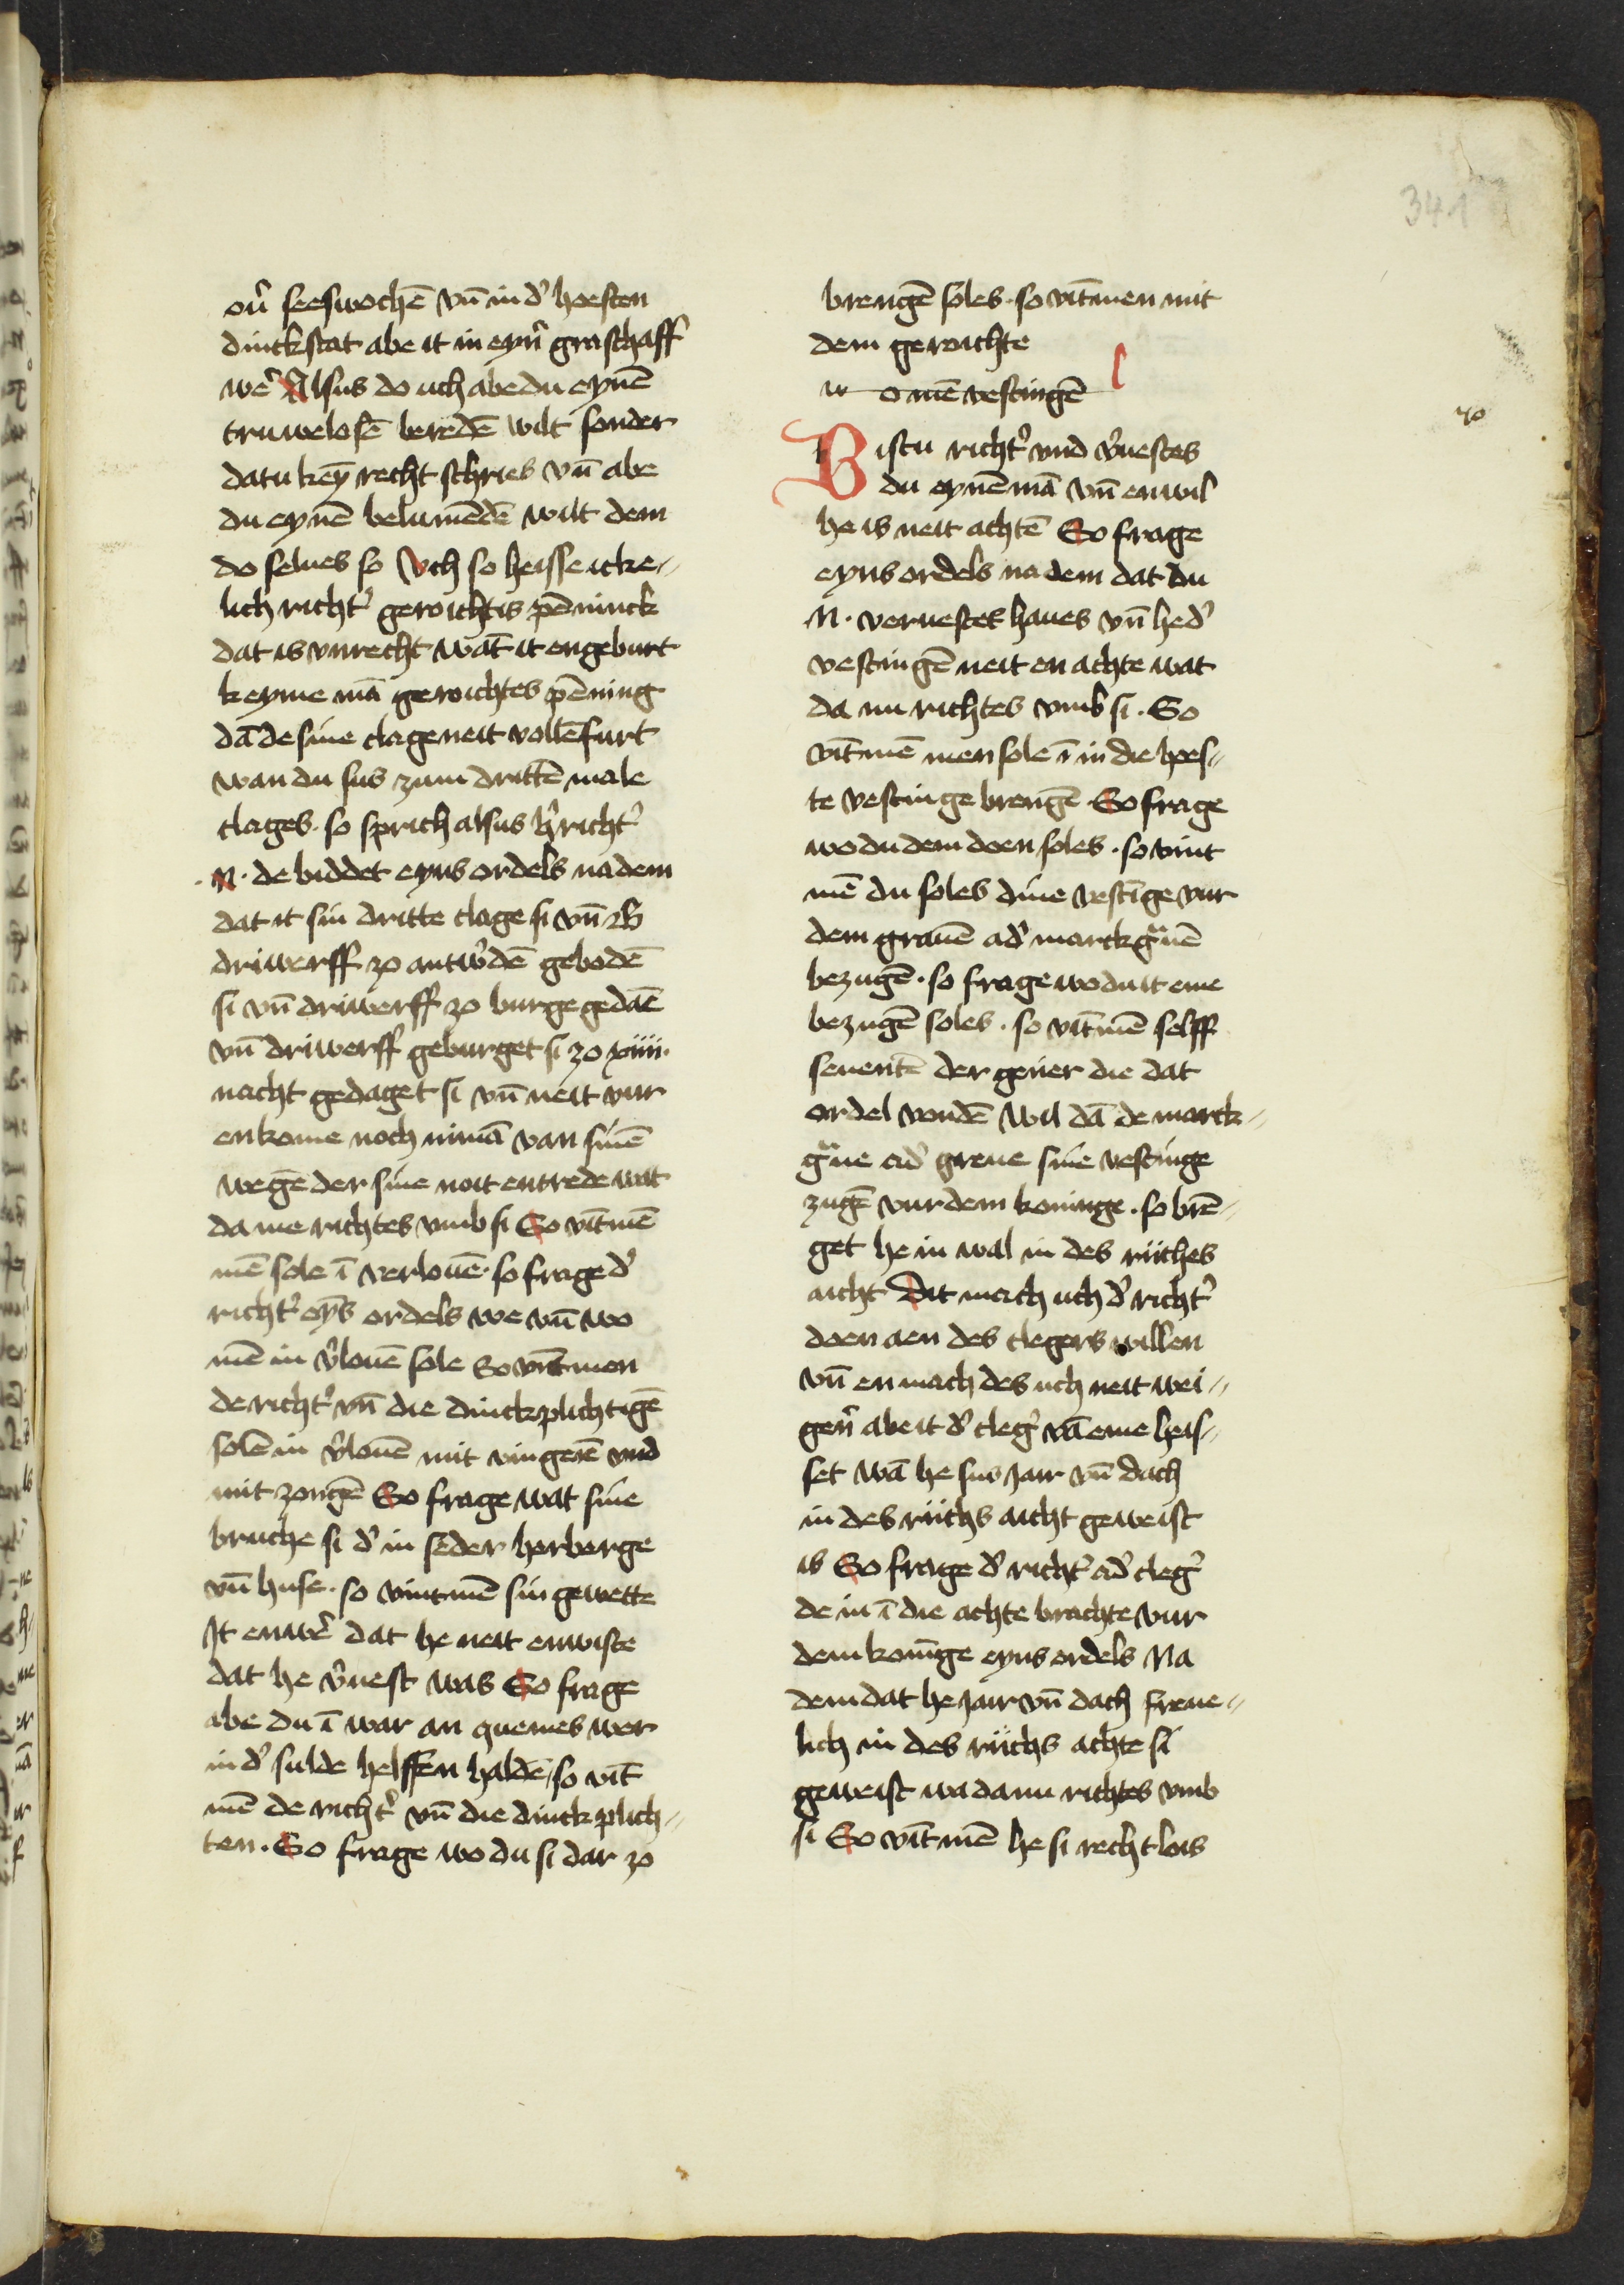 341
ou᷑ seeswochē vn̄ in d᷑ hoesten
dinckstat abe it in eyn᷑ graschaff
we᷑ Alsus do uch abe du eynē
truwelosē beredē wilt sonder
datu key̅ recht schries vn̄ abe
du eynē belumēdē wilt dem
do selues so Uch so heisse icke⸗
lich richt᷑ geroichtis pēninck
dat is vnrecht wāt it engeburt
keyme mā geroichtes pēning
dā de sine clage neit vollēfurt
wan du sus zum drittē male
clages · so sprich alsus h᷑ richt᷑
· N · de biddet eyns ordels nadem
dat it sin dritte clage si vn̄ B
driwerff zo antw᷑dē gebodē
si vn̄ driwerff zo burge gedaē
vn̄ driwerff geburget si zo xiiii ·
nacht gedaget si vn̄ neit vur
enkome noch nimā van sinē
wegē der sine noit entrede wat
da me richtes vmb si So vītmē
mē sole ī verlouē · so frage d᷑
richt᷑ ey̅s ordels we vn̄ wo
mē in v᷑louē sole So vīntmen
de richt᷑ vn̄ die dinckplichtigē
solē in v᷑louē mit vingerē vnd
mit zongē So frage wat sine
bruche si d᷑ in seder herberge
vn̄ huse · so vintmē sin gewette
It enwe᷑ dat he neit enwiste
dat he v᷑uest was So frage
abe du ī war an quemes wer
in d᷑ sulde helffen haldē / so vīt
mē de richt᷑ vn̄ die dinckplich⸗
ten · So frage wo du si dar zo
brengē soles · so vītmen mit
dem geroichte
w o mē vestingē
zo
Bistu richt᷑ vnd v᷑uestes
du eynē mā vn̄ enwil
he is neit achtē So frage
eyns ordels na dem dat du
N · veruestet haues vn̄ he d᷑
vestingē neit en achte wat
da nu richtes vmb si · So
vītmē men sole ī in die hoes⸗
te vestinge brengē So frage
wo du dem doen soles · so vint
mē du soles dine vestīge vur
dem grauē ad᷑ marckgͣuē
bezugē · so frage wo du it eme
bezugē soles · so vītmē selff
seuentē der geūer die dat
ordel vondē Wil dā de marck⸗
gͣue ad᷑ greue sine vestinge
zugē vur dem koninge · so brē⸗
get he in wal in des riiches
aicht Dit mach uch d᷑ richt᷑
doen aen des clegers willen
vn̄ en mach des uch neit wei⸗
gen᷑ abe it d᷑ cleg᷑ vā eme heis⸗
set wā he sus jair vn̄ dach
in des riichs aicht geweist
is So frage d᷑ richt᷑ ad᷑ cleg᷑
de in ī die achte brachte vur
dem konīge eyns ordels Na
dem dat he jair vn̄ dach freue⸗
lich in des riichs achte si
geweist wa da nu richtes vmb
si So vītmē he si rechtlois